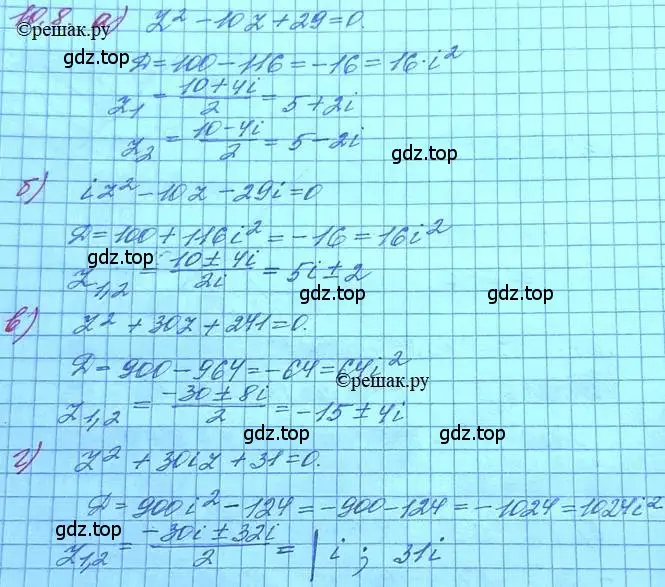 10.8. а) z² - 10z + 29 = 0.
©решак.ру
D = 100 - 116 = -16 = 16·i²
z₁ = (10+4i)/2 = 5+2i
z₂ = (10-4i)/2 = 5-2i
гдз.top
б) iz² - 10z - 29i = 0
D = 100 + 116i² = -16 = 16i²
гдз.top
z₁,₂ = (10±4i)/2i = 5i±2
гдз.top
в) z² + 30z + 241 = 0.
D = 900 - 964 = -64 = 64i²
©решак.ру
z₁,₂ = (-30±8i)/2 = -15±4i
гдз.top
г) z² + 30iz + 31 = 0.
D = 900i² - 124 = -900 - 124 = -1024 = 1024i²
гдз.top
z₁,₂ = (-30i±32i)/2 = | i ; 31i
гдз.top